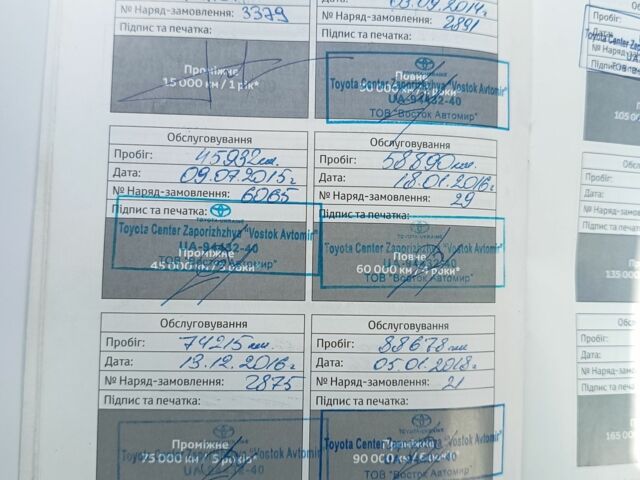 № Наряд-замовлення: 3379
Підпис та печатка:
Проміжне
15 000 км / 1 рік*
03.09.2014г
№ Наряд-замовлення: 2891
Підпис та печатка:
Повне
TOYOTA-UKRAINE
Toyota Center Zaporizhzhya "Vostok Avtomir"
UA-94432-40
ТОВ "Восток Автомир"
Обслуговування
Пробіг: 45932км.
Дата: 09.07.2015г
№ Наряд-замовлення: 6065
Підпис та печатка:
TOYOTA-UKRAINE
Toyota Center Zaporizhzhya "Vostok Avtomir"
UA-94432-40
ТОВ "Восток Автомир"
Проміжне
45 000 км / 3 роки*
Обслуговування
Пробіг: 58890км.
Дата: 18.01.2016г
№ Наряд-замовлення: 29
Підпис та печатка:
TOYOTA-UKRAINE
Toyota Center Zaporizhzhya "Vostok Avtomir"
UA-94432-40
ТОВ "Восток Автомир"
Повне
60 000 км / 4 роки*
Обслуговування
Пробіг: 74215км
Дата: 13.12.2016г
№ Наряд-замовлення: 2875
Підпис та печатка:
TOYOTA-UKRAINE
Toyota Center Zaporizhzhya "Vostok Avtomir"
UA-94432-40
Проміжне
75 000 км / 5 років*
Обслуговування
Пробіг: 88678км
Дата: 05.01.2018г
№ Наряд-замовлення: 21
Підпис та печатка:
TOYOTA-UKRAINE
Toyota Center Zaporizhzhya "Vostok Avtomir"
UA-94432-40
ТОВ "Восток Автомир"
90 000 км /
Обслуг
Пробіг:
Дата:
№ Наряд
Підпис та
105 00
Обслуг
Пробіг:
Дата:
№ Наряд-за
Підпис та
135 000
Обслу
Пробіг:
Дата:
№ Наряд-за
Підпис та п
165 00